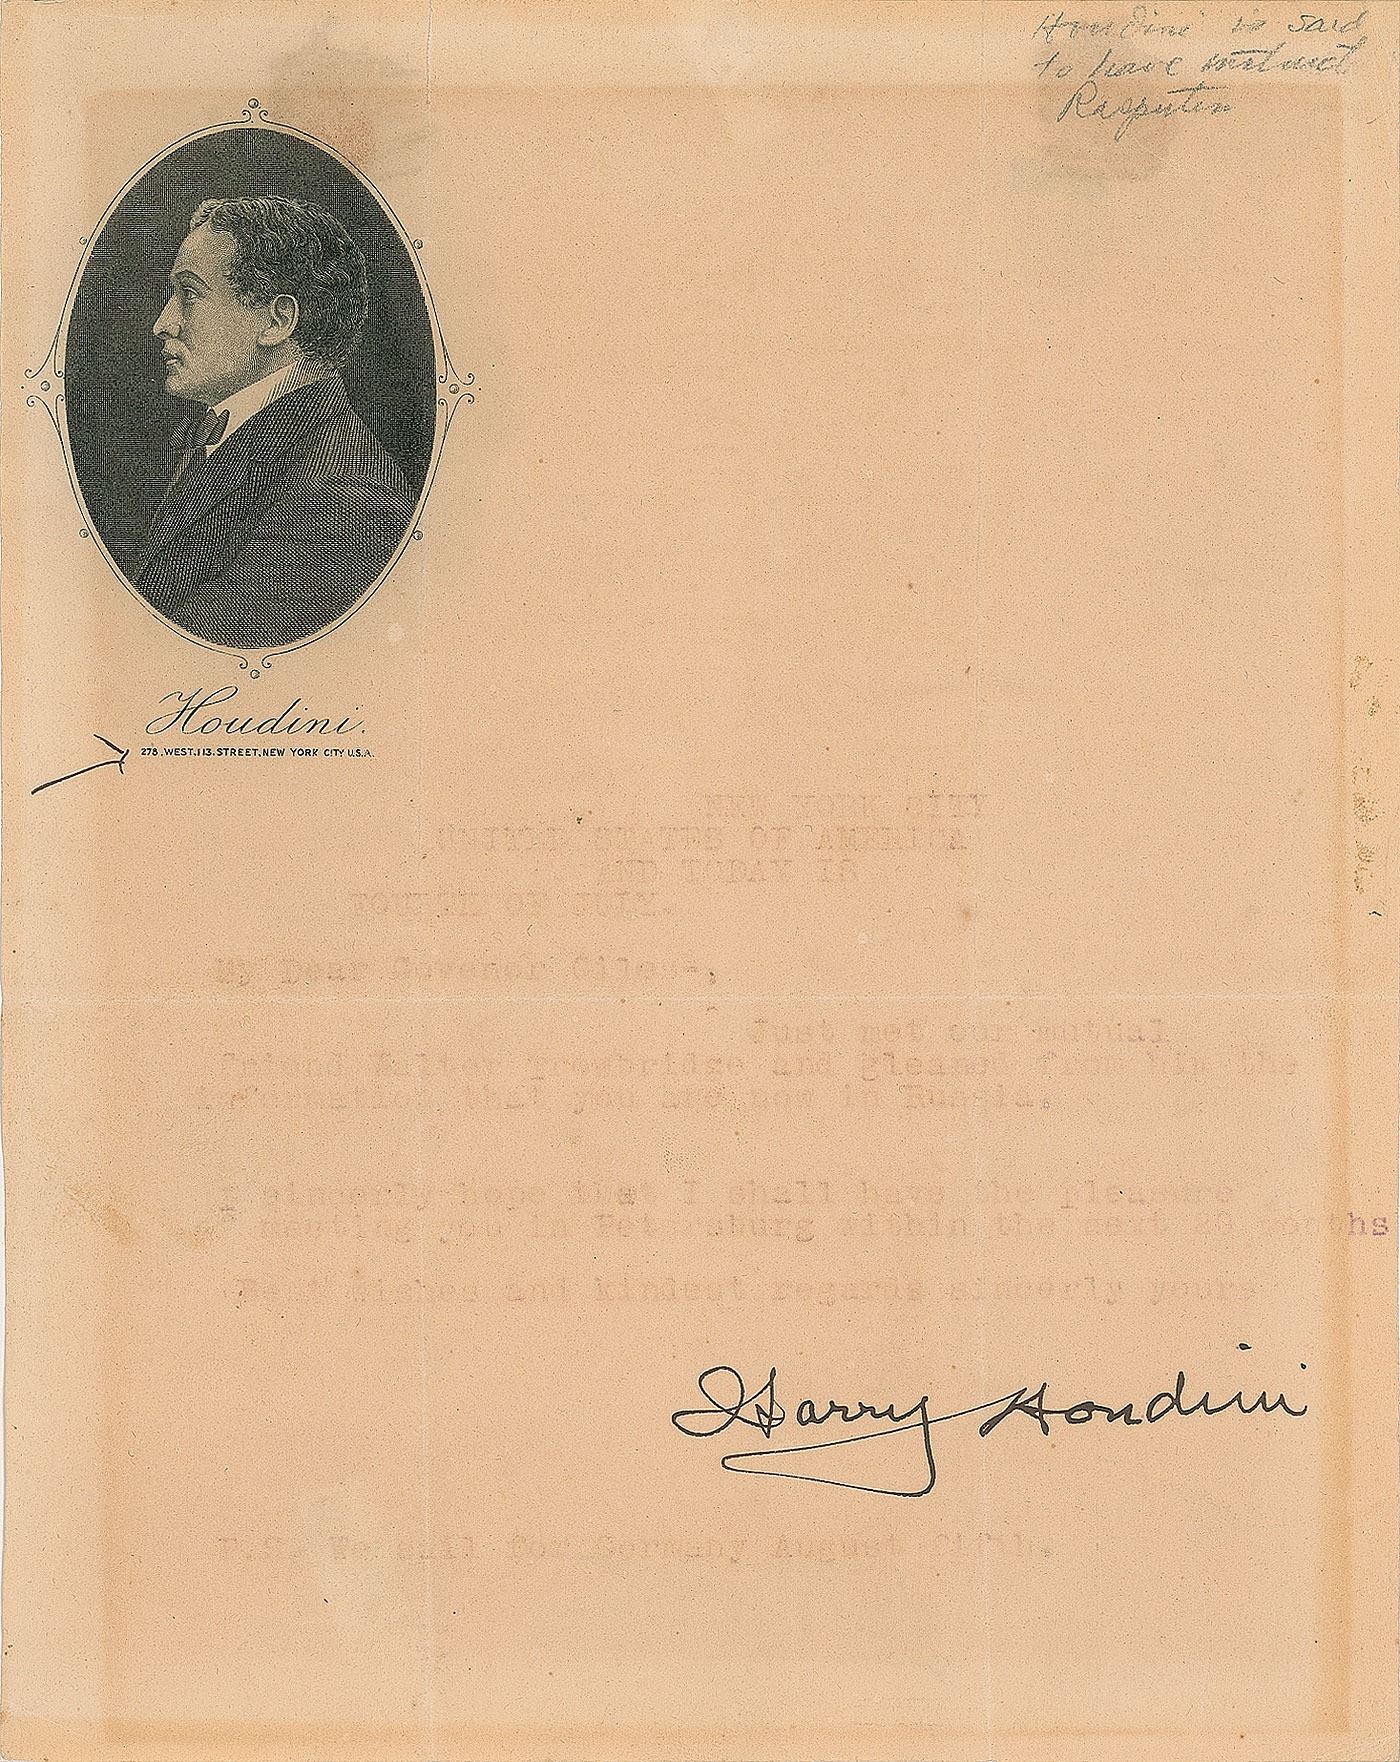 Houdini is said
to have
Rasputin
Houdini.
278.WEST.113.STREET.NEW YORK CITY U.S.A.
NEW YORK CITY
UNITED STATES OF AMERICA
AND TODAY IS
FOURTH OF
My Dear Govenor
Just met our mutual
friend Walter Trowbridge and gleaned from him the
information that you are now in Russia.
I sincerly hope that I shall have the pleasure
meeting you in Petersburg within the next months
Best Wishes and kindest regards sincerly yours
Harry Houdini
P.S. We sail for Germany August